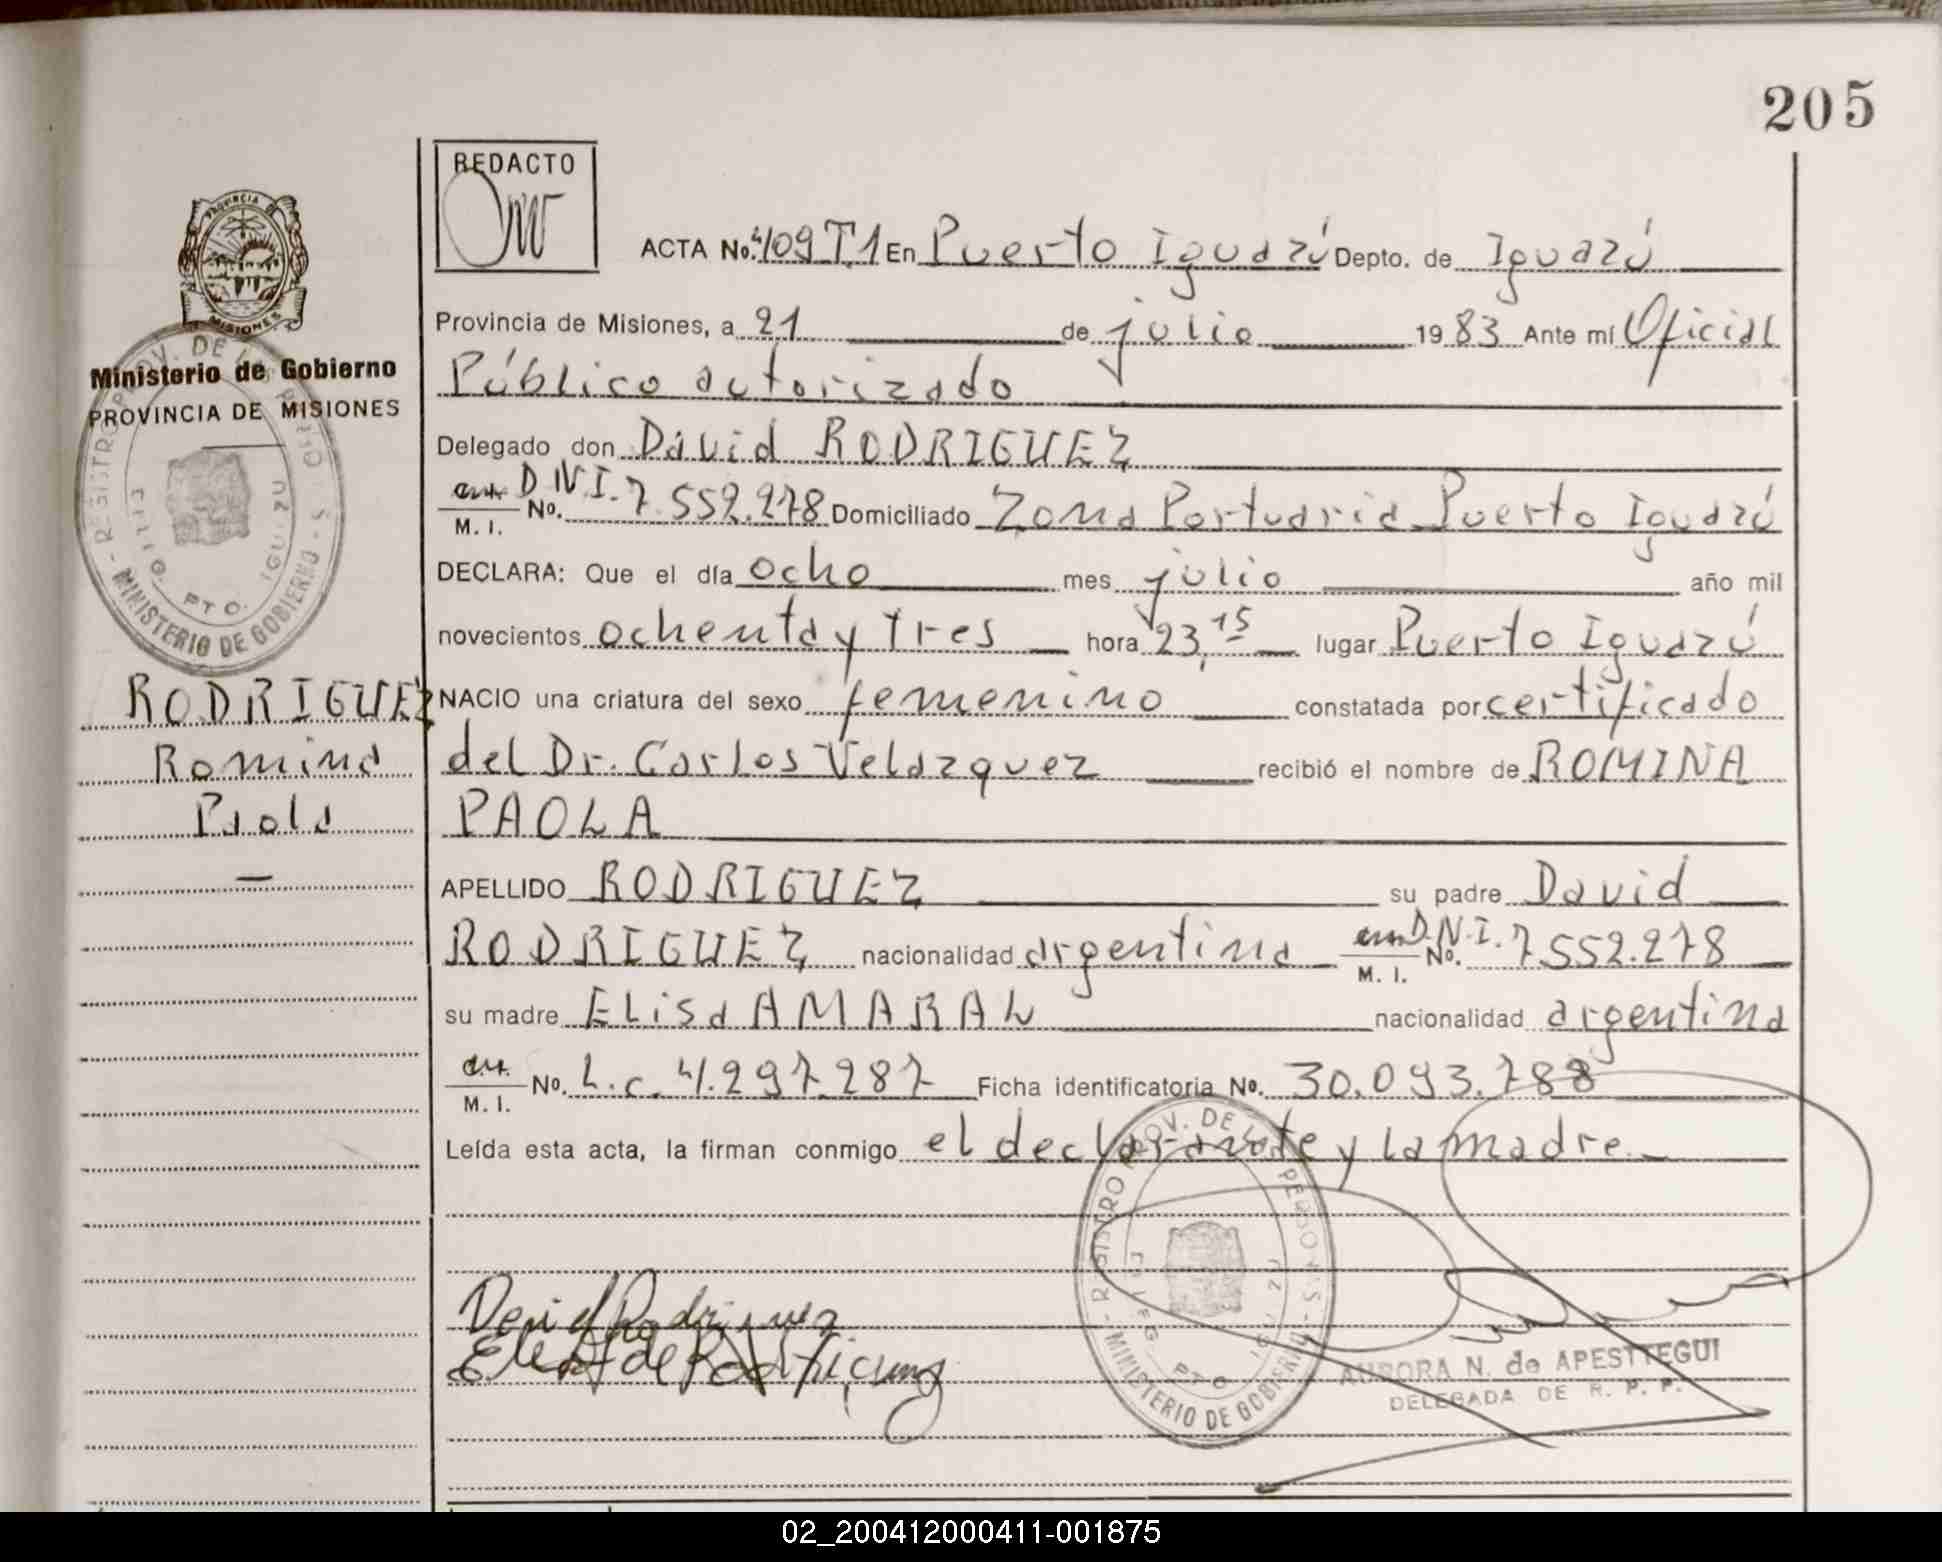 205
REDACTO
PROVINCIA DE
MISIONES
Ministerio de Gobierno
PROVINCIA DE MISIONES
REGISTRO PROV. DE LAS PERSONAS - MINISTERIO DE GOBIERNO -
PTO. IGUAZU
RODRIGUEZ
Romina
Paola
—
ACTA No. 409 T.1 En Puerto Iguazú Depto. de Iguazú
Provincia de Misiones, a 21 de julio 1983 Ante mí Oficial
Público autorizado
Delegado don David RODRIGUEZ
M. I. No. D.N.I. 7.552.278 Domiciliado Zona Portuaria Puerto Iguazú
DECLARA: Que el día ocho mes julio año mil
novecientos ochenta y tres hora 23,15 lugar Puerto Iguazú
NACIO una criatura del sexo femenino constatada por certificado
del Dr. Carlos Velazquez recibió el nombre de ROMINA
PAOLA
APELLIDO RODRIGUEZ su padre David
RODRIGUEZ nacionalidad argentina M. I. No. D.N.I. 7.552.278
su madre Elisa AMARAL nacionalidad argentina
M. I. No. L.c. 4.297.287 Ficha identificatoria No. 30.093.788
Leída esta acta, la firman conmigo el declarante y la madre.
REGISTRO PROV. DE LAS PERSONAS - MINISTERIO DE GOBIERNO -
PTO. IGUAZU
AURORA N. de APESTTEGUI
DELEGADA DE R. P. P.
02_200412000411-001875